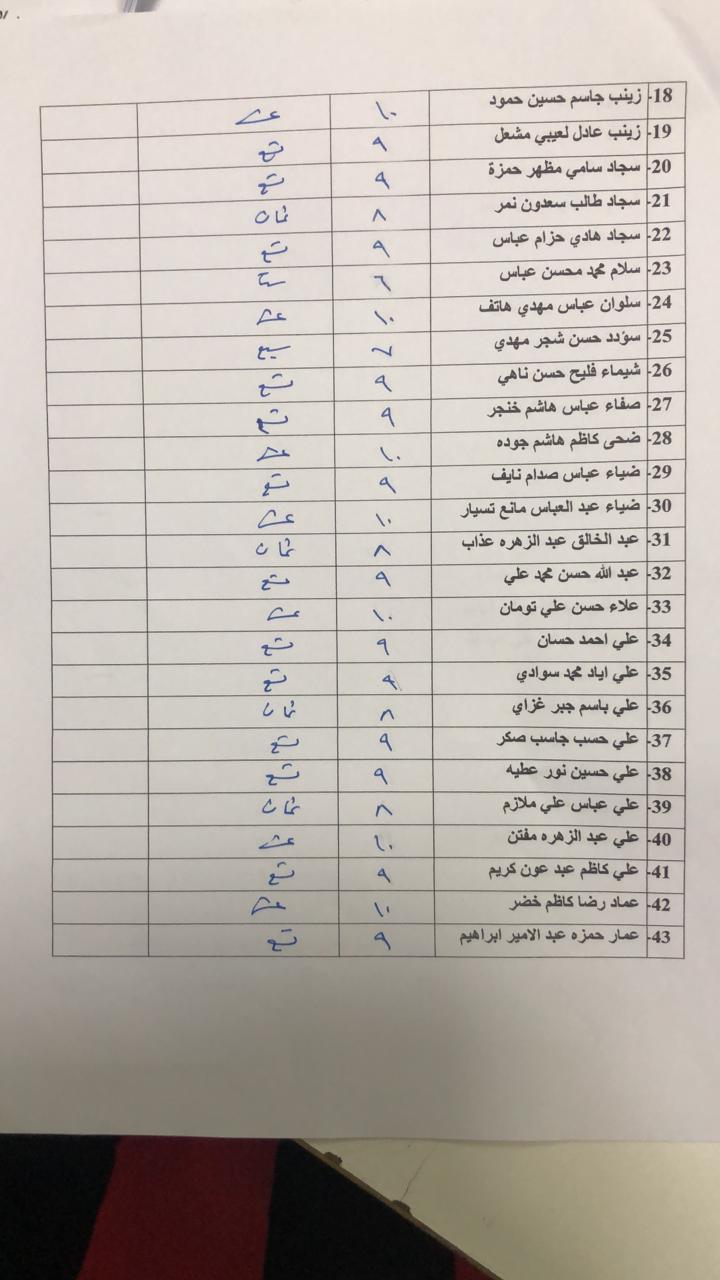 18- زينب جاسم حسين حمود ١٠ عشر
19- زينب عادل لعيبي مشعل ٩ تسع
20- سجاد سامي مظهر حمزة ٩ تسع
21- سجاد طالب سعدون نمر ٨ ثمان
22- سجاد هادي حزام عباس ٩ تسع
23- سلام محمد محسن عباس ٦ ست
24- سلوان عباس مهدي هاتف ١٠ عشر
25- سؤدد حسن شجر مهدي ٧ سبع
26- شيماء فليح حسن ناهي ٩ تسع
27- صفاء عباس هاشم خنجر ٩ تسع
28- ضحى كاظم هاشم جوده ١٠ عشر
29- ضياء عباس صدام نايف ٩ تسع
30- ضياء عبد العباس مانع تسيار ١٠ عشر
31- عبد الخالق عبد الزهره عذاب ٨ ثمان
32- عبد الله حسن محمد علي ٩ تسع
33- علاء حسن علي تومان ١٠ عشر
34- علي احمد حسان ٩ تسع
35- علي اياد محمد سوادي ٩ تسع
36- علي باسم جبر غزاي ٨ ثمان
37- علي حسب جاسب صكر ٩ تسع
38- علي حسين نور عطيه ٩ تسع
39- علي عباس علي ملازم ٨ ثمان
40- علي عبد الزهره مفتن ١٠ عشر
41- علي كاظم عبد عون كريم ٩ تسع
42- عماد رضا كاظم خضر ١٠ عشر
43- عمار حمزه عبد الامير ابراهيم ٩ تسع